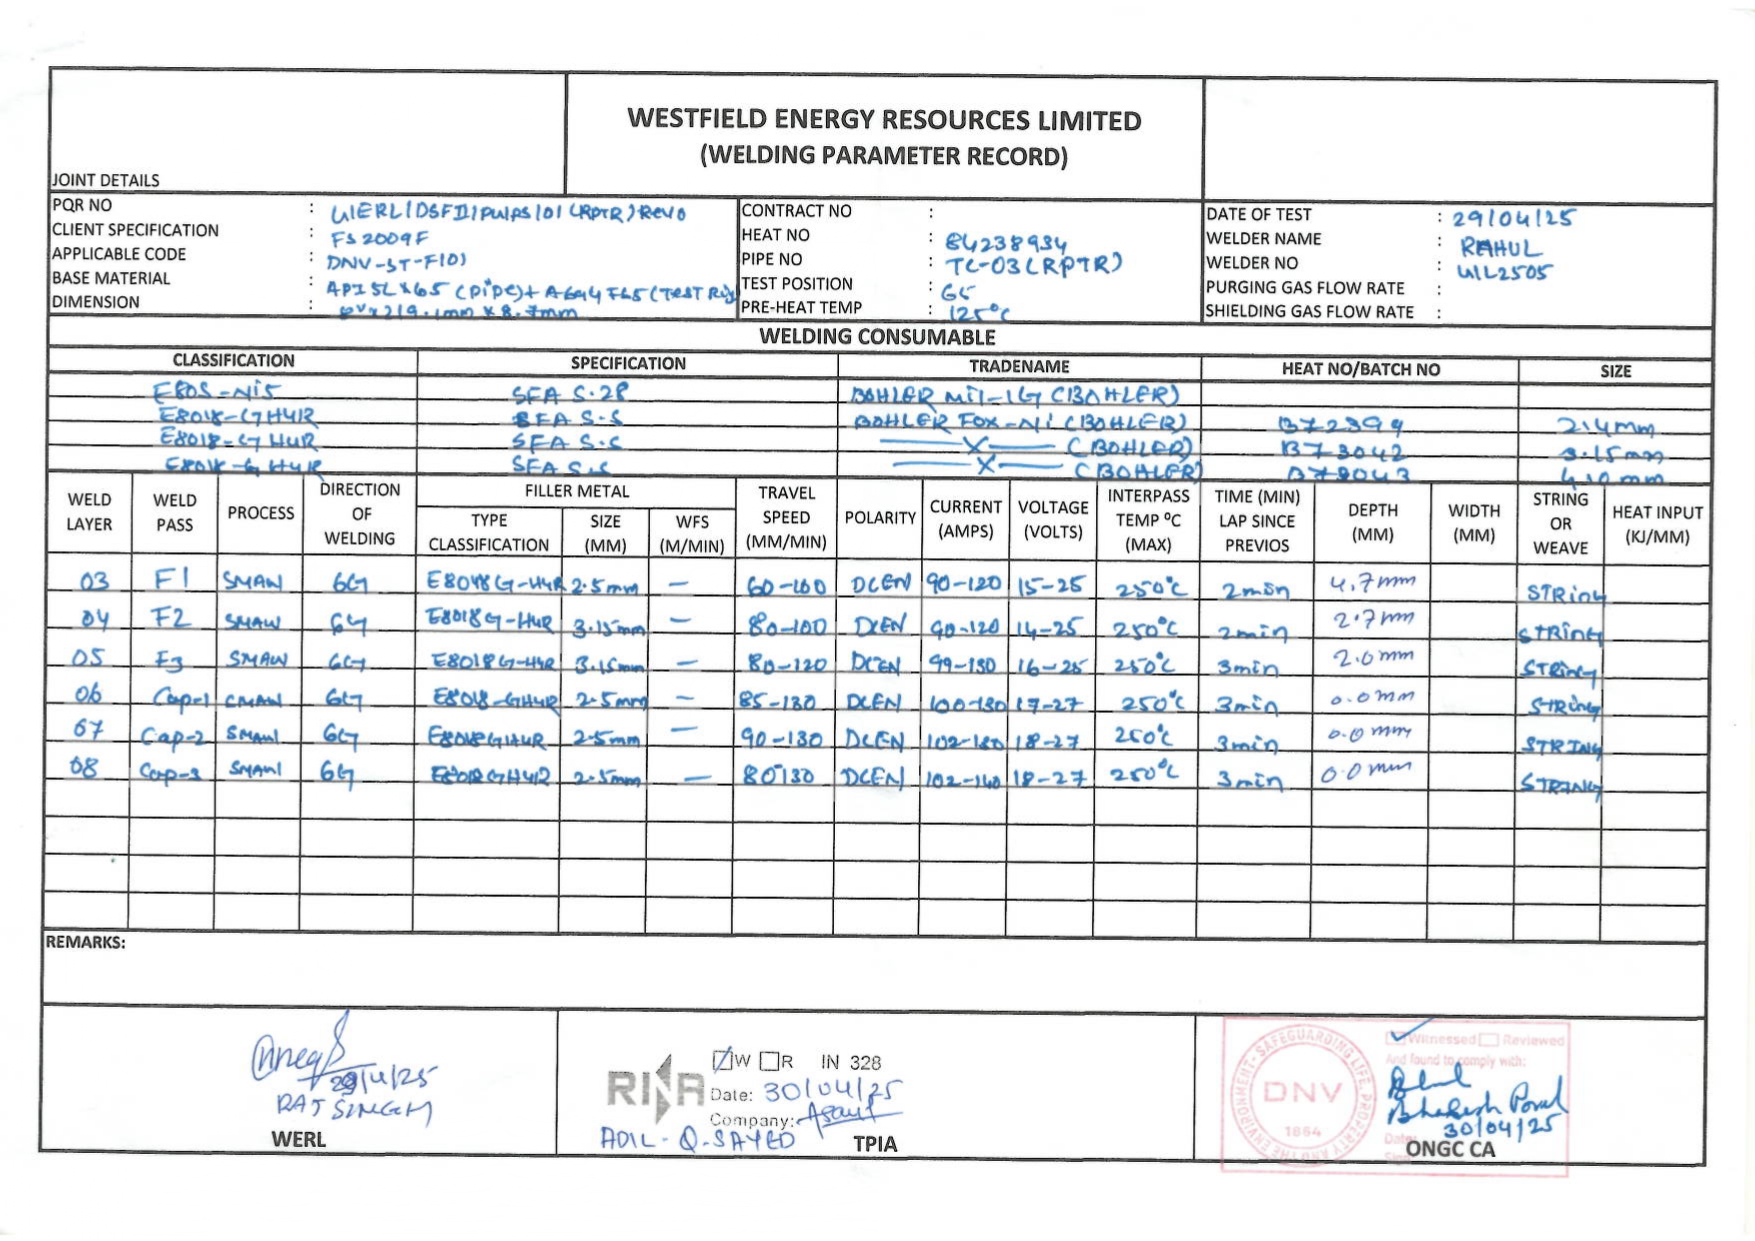 WESTFIELD ENERGY RESOURCES LIMITED
(WELDING PARAMETER RECORD)
JOINT DETAILS
PQR NO : WERL/DSFII/PWPS/01 (RPTR) Rev0
CLIENT SPECIFICATION : FS 2009F
APPLICABLE CODE : DNV-ST-F101
BASE MATERIAL : API 5L X65 (Pipe) + A694 F65 (TEST Ring
DIMENSION : 219.1mm x 8.7mm
CONTRACT NO :
HEAT NO : 84238934
PIPE NO : TC-03 (RPTR)
TEST POSITION : 6G
PRE-HEAT TEMP : 125°C
DATE OF TEST : 29/04/25
WELDER NAME : RAHUL
WELDER NO : WL2505
PURGING GAS FLOW RATE :
SHIELDING GAS FLOW RATE :
WELDING CONSUMABLE
CLASSIFICATION SPECIFICATION TRADENAME HEAT NO/BATCH NO SIZE
E80S-Ni5 SFA 5.28 BOHLER MTI-IG (BOHLER)
E8018-GH4R SFA 5.5 BOHLER FOX-Ni (BOHLER) B72399 2.4mm
E8018-G H4R SFA 5.5 —X— (BOHLER) B73042 3.15mm
E8018-G H4R SFA 5.5 —X— (BOHLER) 4.0mm
WELD LAYER WELD PASS PROCESS DIRECTION OF WELDING FILLER METAL TYPE CLASSIFICATION SIZE (MM) WFS (M/MIN) TRAVEL SPEED (MM/MIN) POLARITY CURRENT (AMPS) VOLTAGE (VOLTS) INTERPASS TEMP ⁰C (MAX) TIME (MIN) LAP SINCE PREVIOS DEPTH (MM) WIDTH (MM) STRING OR WEAVE HEAT INPUT (KJ/MM)
03 F1 SMAW 6G E8018G-H4R 2.5mm — 60-100 DCEN 90-120 15-25 250°C 2min 4.7mm STRING
04 F2 SMAW 6G E8018G-H4R 3.15mm — 80-100 DCEN 90-120 14-25 250°C 2min 2.7mm STRING
05 F3 SMAW 6G E8018G-H4R 3.15mm — 80-120 DCEN 99-130 16-25 250°C 3min 2.0mm STRING
06 Cap-1 SMAW 6G E8018-GH4R 2.5mm — 85-130 DCEN 100-130 17-27 250°C 3min 0.0mm STRING
07 Cap-2 SMAW 6G E8018GH4R 2.5mm — 90-130 DCEN 102-130 18-27 250°C 3min 0.0mm STRING
08 Cap-3 SMAW 6G E8018GH4R 2.5mm — 80-130 DCEN 102-140 18-27 250°C 3min 0.0mm STRING
REMARKS:
29/4/25
RAJ SINGH
WERL
RINA
W R IN 328
Date: 30/04/25
Company:
ADIL-Q-SAYED
TPIA
SAFEGUARDING LIFE, PROPERTY AND THE ENVIRONMENT
DNV
1864
Witnessed Reviewed
And found to comply with:
30/04/25
ONGC CA